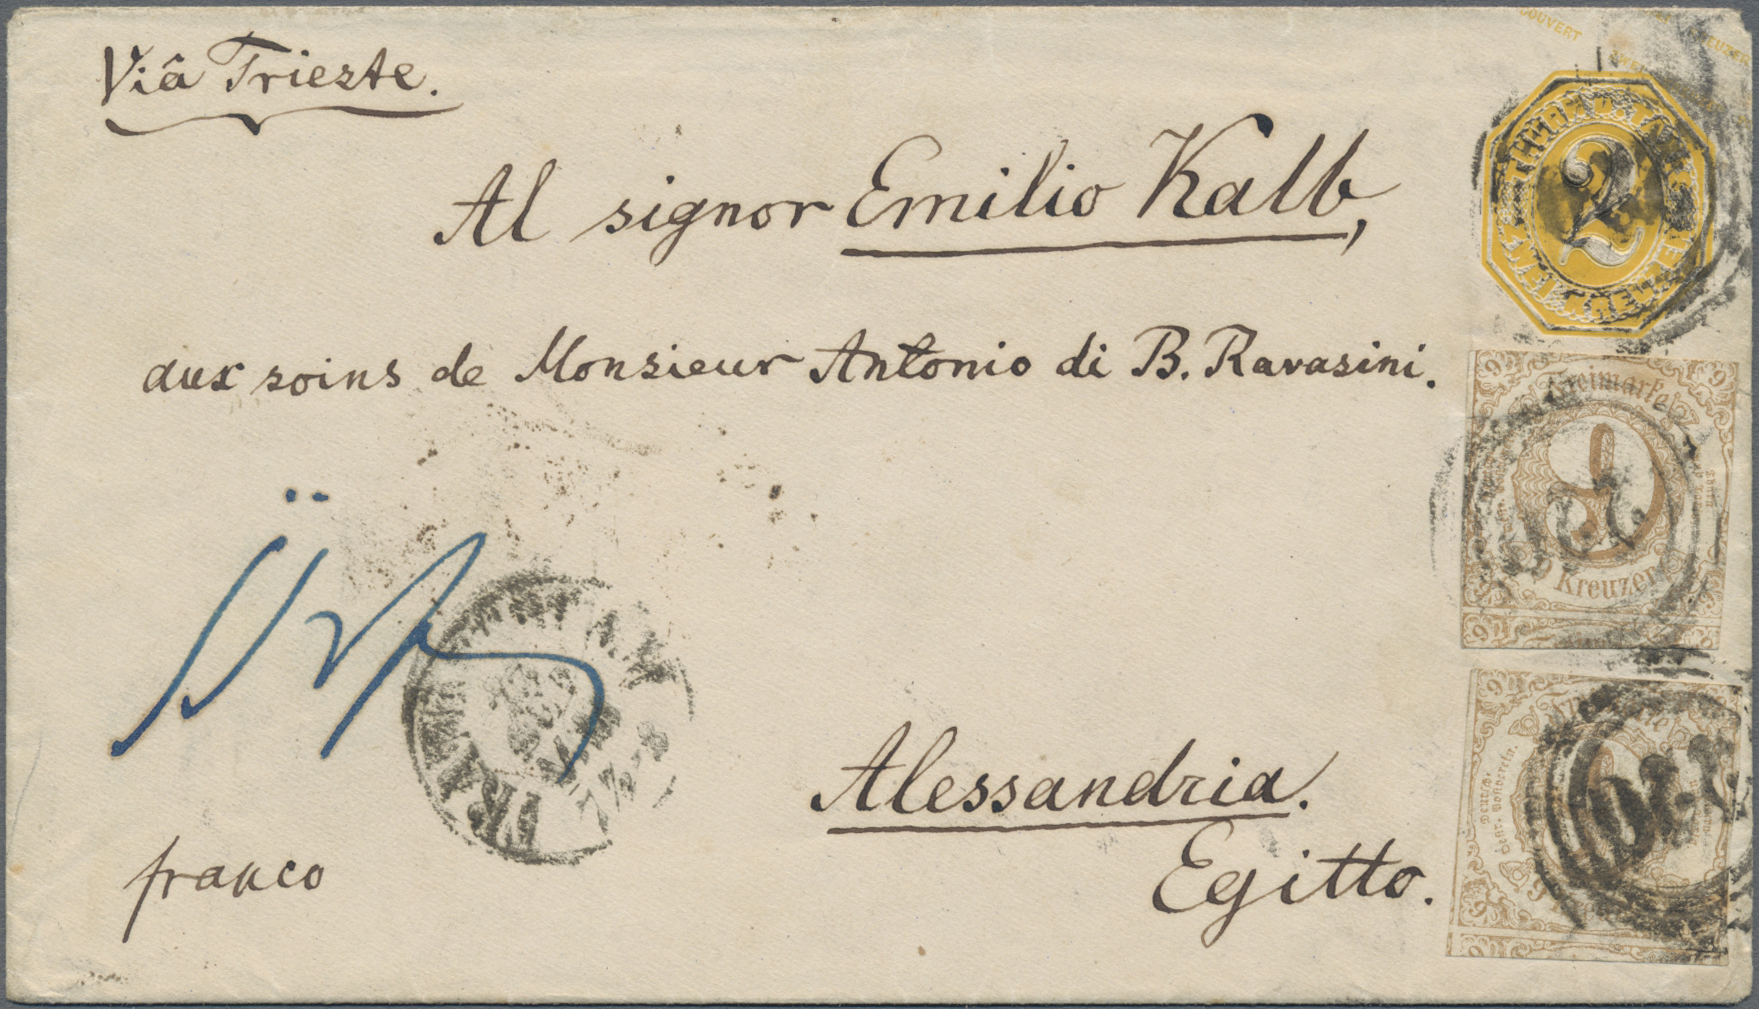 Viâ Trieste.
Al signor Emilio Kalb,
aux soins de Monsieur Antonio di B. Ravasini.
Alessandria.
Egitto.
franco
COUVERT
2
ZWEI KREUZER
Freimarke
9
9 Kreuzer
220
220